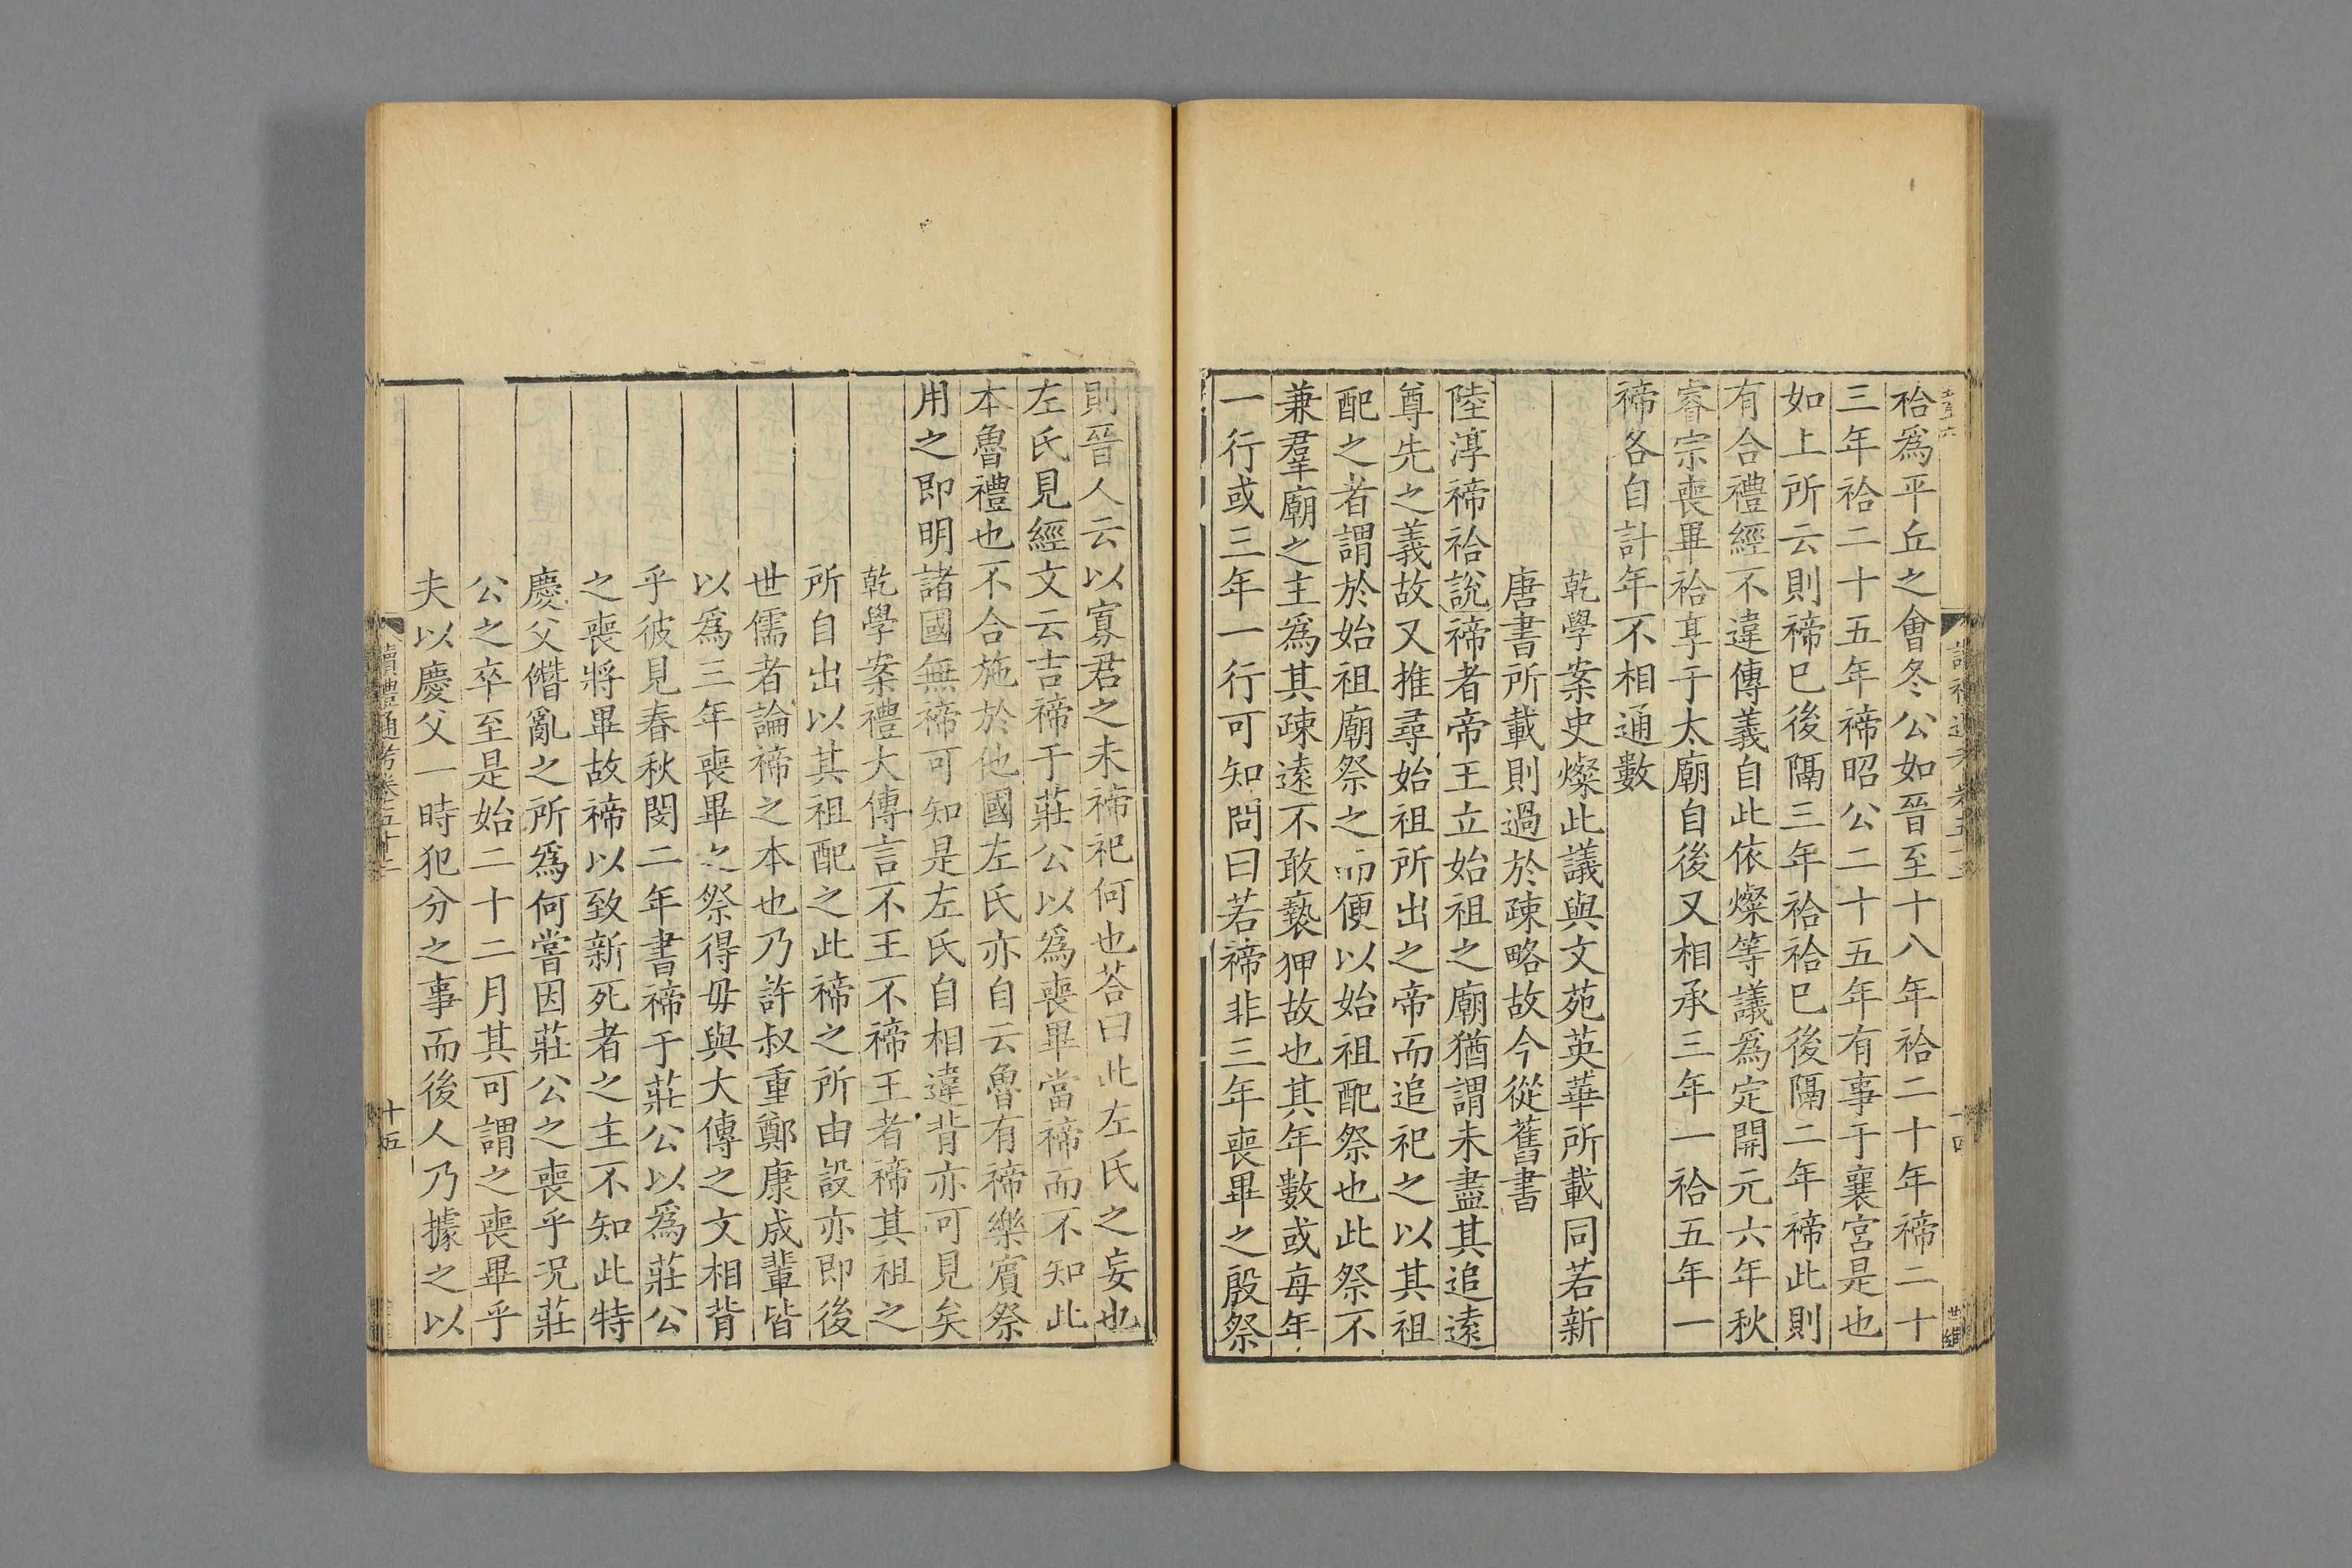 祫爲平丘之會冬公如晉至十八年祫二十年禘二十
三年祫二十五年禘昭公二十五年有事于襄宮是也
如上所云則禘巳後隔三年祫祫巳後隔二年禘此則
有合禮經不違傳義自此依燦等議爲定開元六年秋
睿宗喪畢祫享于太廟自後又相承三年一祫五年一
禘各自計年不相通數
乾學案史燦此議與文苑英華所載同若新
唐書所載則過於疎略故今從舊書
陸淳禘祫說禘者帝王立始祖之廟猶謂未盡其追遠
尊先之義故又推尋始祖所出之帝而追祀之以其祖
配之者謂於始祖廟祭之而便以始祖配祭也此祭不
兼羣廟之主爲其疎遠不敢褻狎故也其年數或每年
一行或三年一行可知問曰若禘非三年喪畢之殷祭
則晉人云以寡君之未禘祀何也荅曰此左氏之妄也
左氏見經文云吉禘于莊公以爲喪畢當禘而不知此
本魯禮也不合施於他國左氏亦自云魯有禘樂賓祭
用之即明諸國無禘可知是左氏自相違背亦可見矣
乾學案禮大傳言不王不禘王者禘其祖之
所自出以其祖配之此禘之所由設亦即後
世儒者論禘之本也乃許叔重鄭康成輩皆
以爲三年喪畢之祭得毋與大傳之文相背
乎彼見春秋閔二年書禘于莊公以爲莊公
之喪將畢故禘以致新死者之主不知此特
慶父僭亂之所爲何嘗因莊公之喪乎况莊
公之卒至是始二十二月其可謂之喪畢乎
夫以慶父一時犯分之事而後人乃據之以
讀禮通考卷五十二
十五